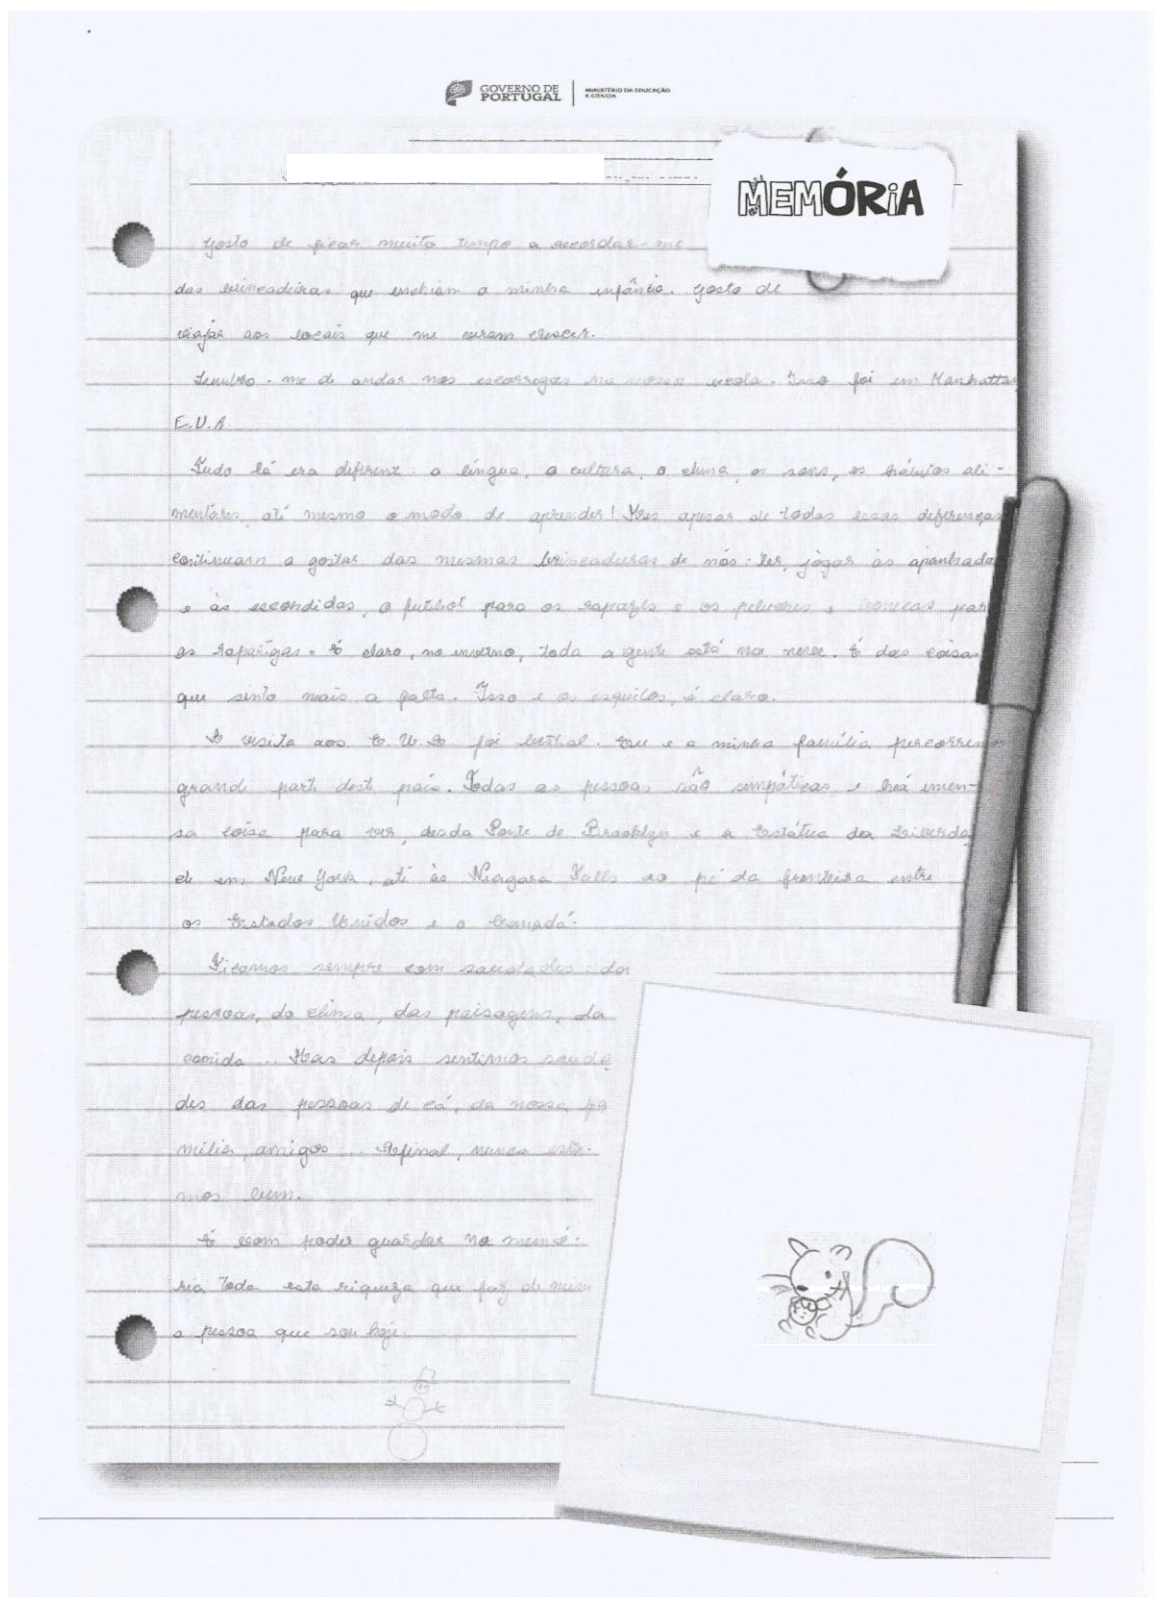 GOVERNO DE
PORTUGAL
MINISTÉRIO DA EDUCAÇÃO
E CIÊNCIA
MEMÓRiA
Gosto de ficar muito tempo a recordar-me
das brincadeiras que enchiam a minha infância. Gosto de
viajar aos locais que me viram crescer.
Lembro-me de andar nos escorregas na nossa escola. Isso foi em Manhattan
E.U.A
Tudo lá era diferente: a língua, a cultura, o clima, os sons, os hábitos ali-
mentares, até mesmo o modo de aprender! Mas apesar de todas essas diferenças
continuam a gostar das mesmas brincadeiras de nós: ler, jogar às apanhadas
e às escondidas, o futebol para os rapazes e os peluches e bonecas para
as raparigas. E claro, no inverno, toda a gente está na neve. É das coisas
que sinto mais a falta. Isso e os esquilos, é claro.
A visita aos E.U.A. foi bestial. Eu e a minha família percorremos
grande parte deste país. Todas as pessoas são simpáticas e há imen-
sa coisa para ver, desda Ponte de Brooklyn e a Estátua da Liberda
de em New York, até às Niagara Falls ao pé da fronteira entre
os Estados Unidos e o Canadá.
Ficamos sempre com saudades: das
pessoas, do clima, das paisagens, da
comida... Mas depois sentimos sauda
des das pessoas de cá, da nossa fa
mília, amigos... Afinal, nunca esta-
mos bem.
É bom poder guardar na memó-
ria toda esta riqueza que faz de mim
a pessoa que sou hoje.